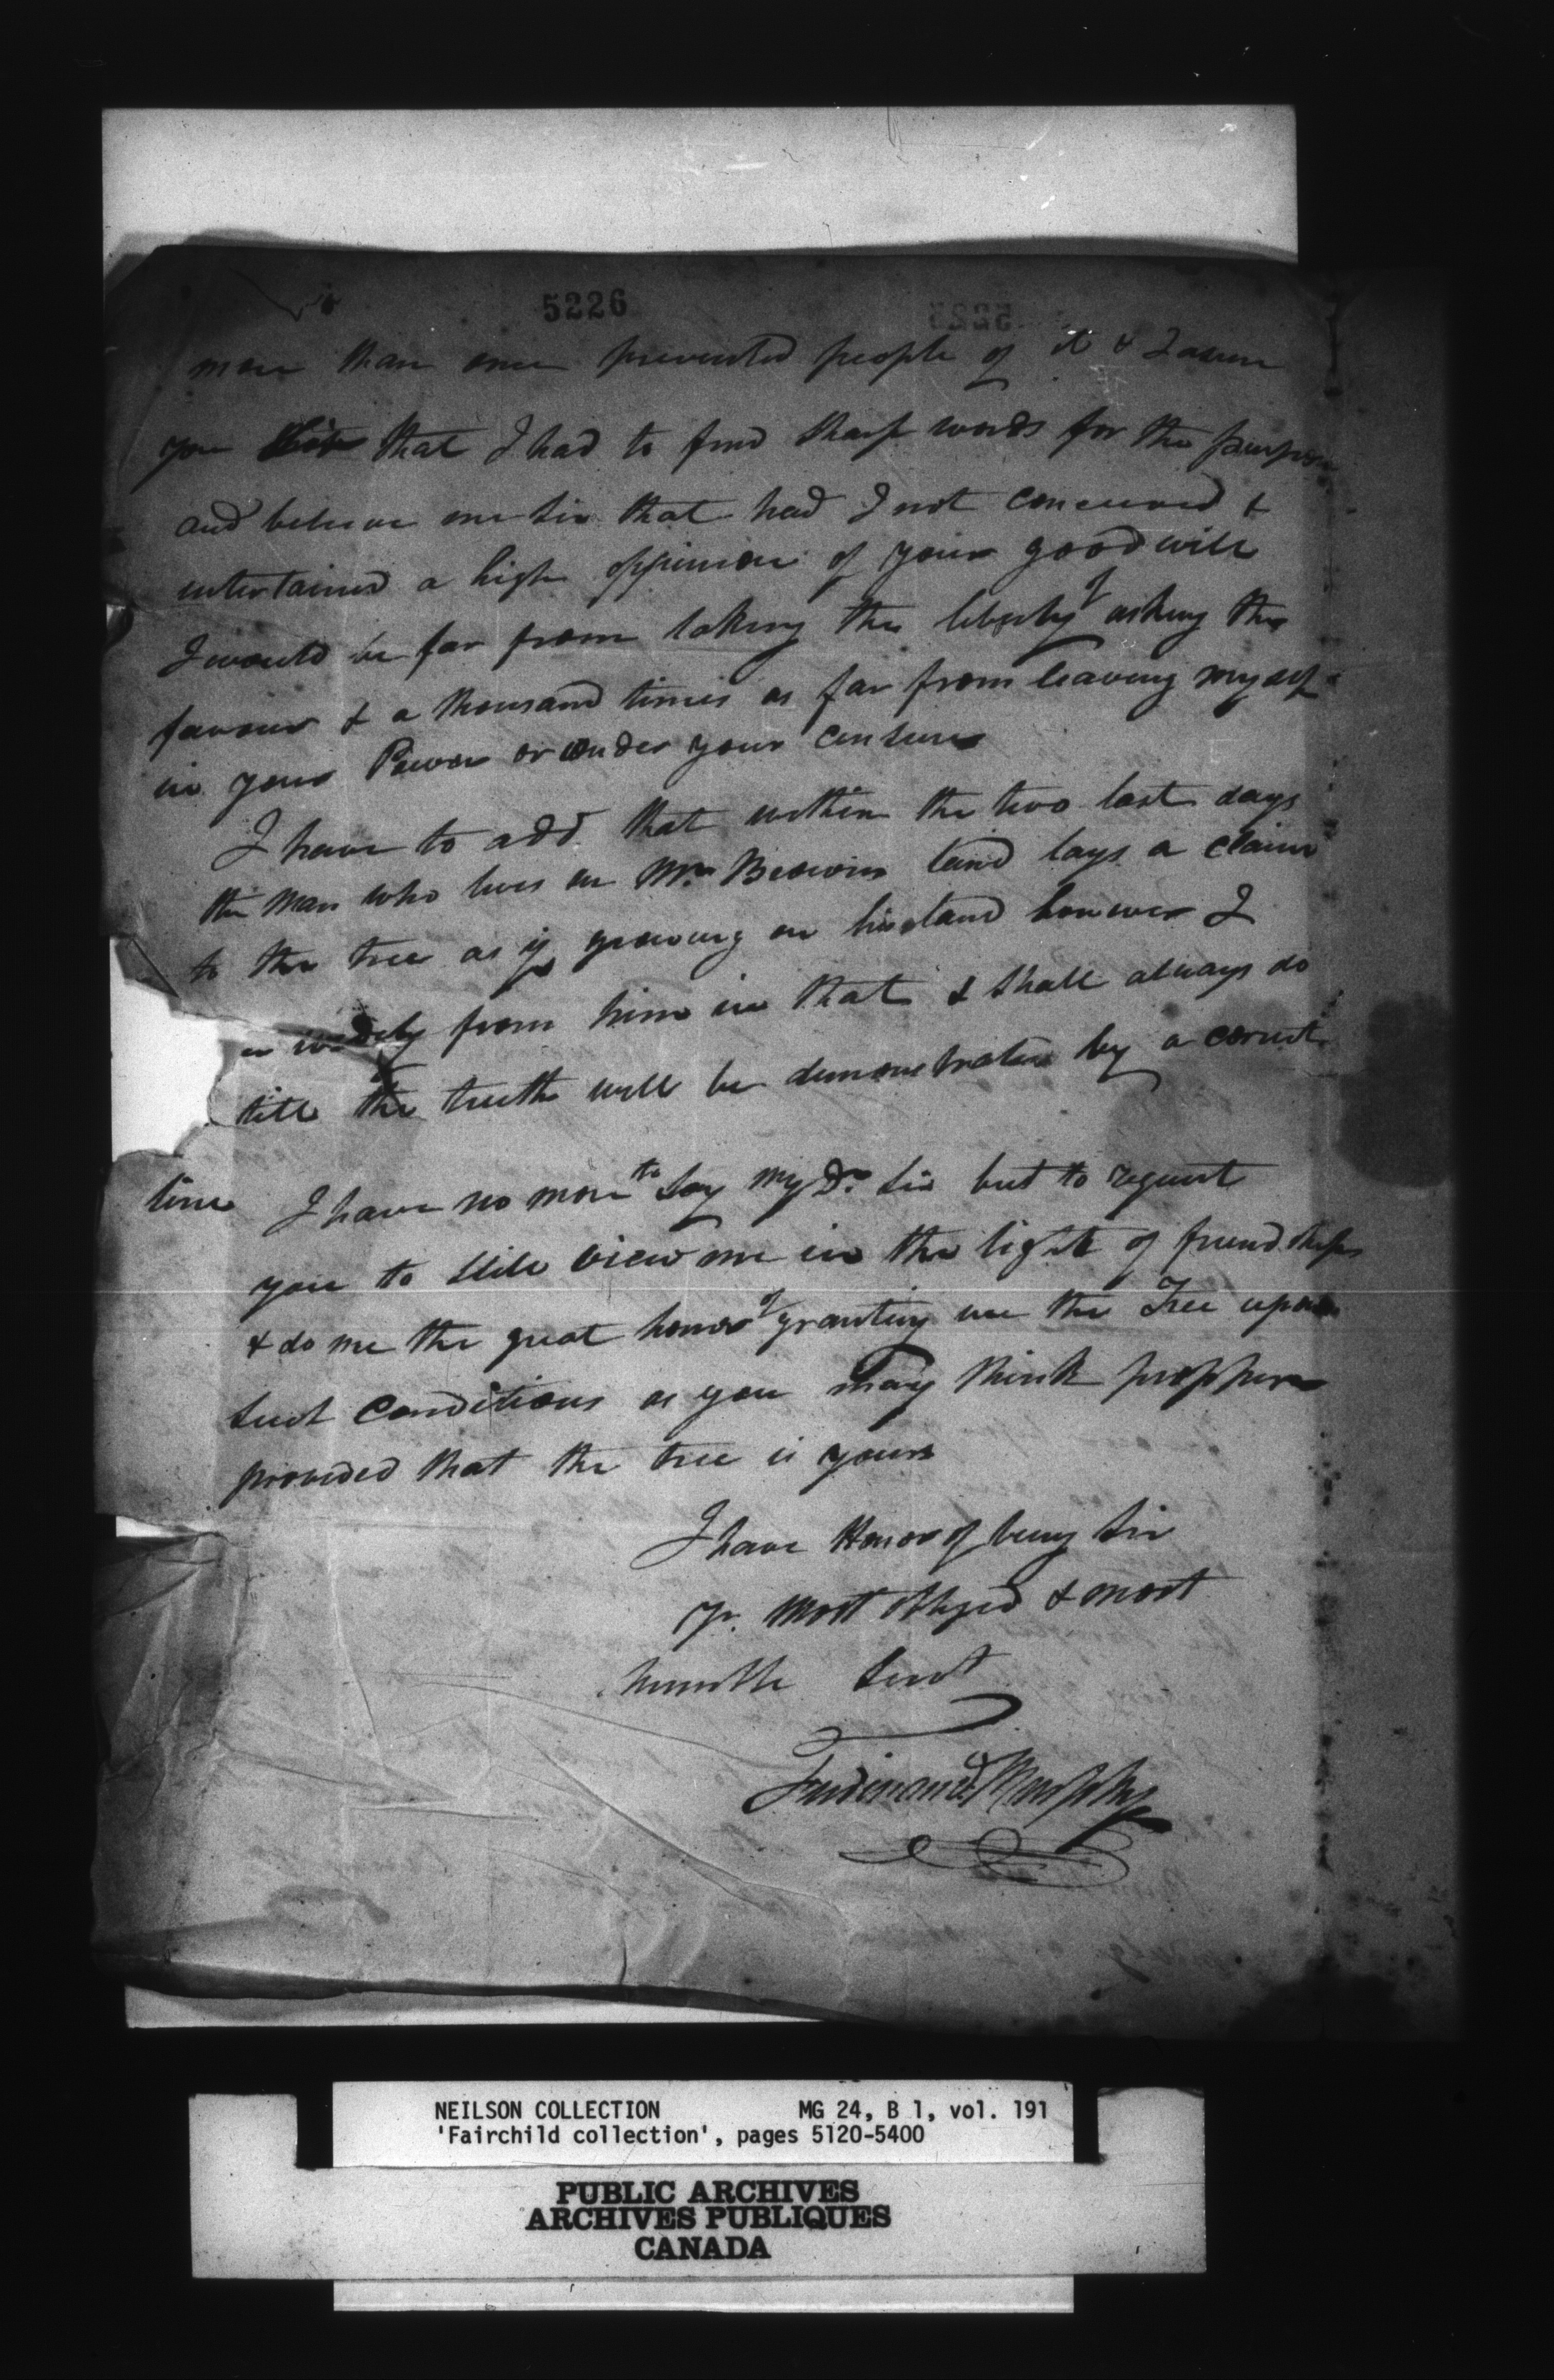 5226
more than once prevented people of it & I assure
you that I had to find sharp words for the purpose
and believe me Sir that had I not conceived &
entertained a high oppinion of your good will
I would be far from taking the liberty of asking the
favour & a thousand times as far from leaving myself
in your Power or under your censure
I have to add that within the two last days
the man who lives on Mr. Browns land lays a claim
to the tree as if growing on his land however I
widely from him in that & shall always do
till the truth will be demonstrated by a correct
line
I have no more to say my Dr. Sir but to request
you to still view me in the light of friendship
& do me the great honor of granting me the Tree upon
such Conditions as you may think propper
provided that the tree is yours
I have Honor of being Sir
yr. most obliged & most
humble Servt
Ferdinand Murphy
NEILSON COLLECTION MG 24, B 1, vol. 191
'Fairchild collection', pages 5120-5400
PUBLIC ARCHIVES
ARCHIVES PUBLIQUES
CANADA